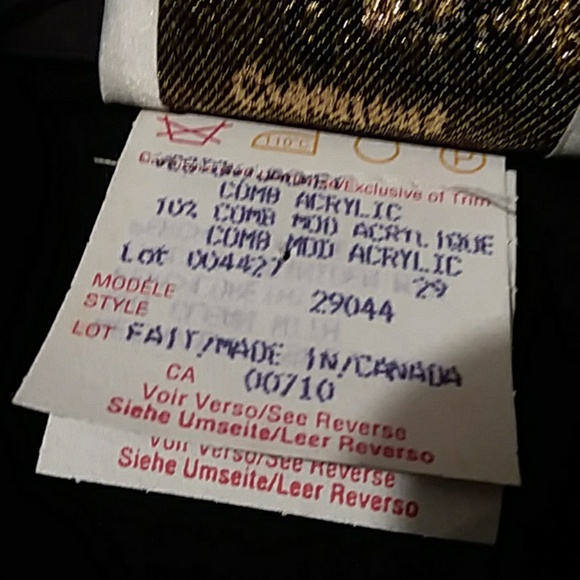 110 C
P
Exclusive of Trim
COMB ACRYLIC
10% COMB MOD ACRYLIQUE
COMB MOD ACRYLIC
Lot 004427 29
MODÈLE
STYLE 29044
LOT FAIT/MADE IN/CANADA
CA 00710
Voir Verso/See Reverse
Siehe Umseite/Leer Reverso
Voir Verso/See Reverse
Siehe Umseite/Leer Reverso